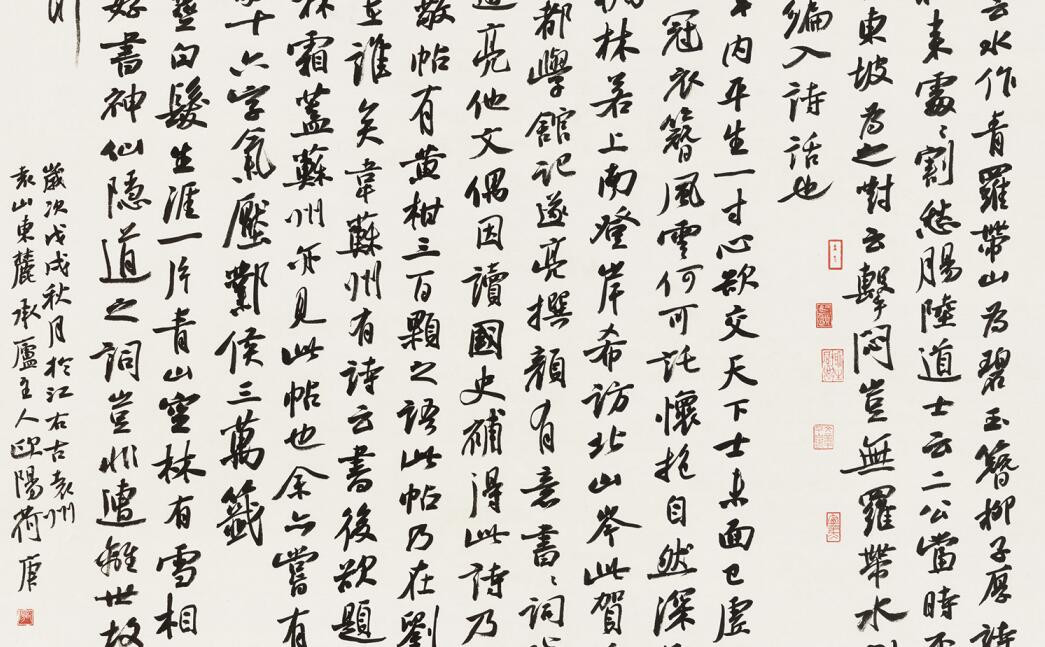 水作青羅帶山為碧玉簪柳子厚詩
來處處割愁腸陸道士云二公當時不
東坡為之對云擊悶豈無羅帶水
編入詩話也
內平生一寸心欲交天下士未面已虛
冠衣簪風雲何可託懷抱自然深
林若上南登岸希訪北山岑此賀
都學館記遂亮撰顏有意書書詞
亮他文偶因讀國史補得此詩乃
帖有黃柑三百顆之語此帖乃在劉
誰矣韋蘇州有詩云書後欲題
林霜蓋蘇州亦見此帖也余亦嘗有
十六字氣壓鄴侯三萬籤
白髮生涯一片青山空林有雪相
好書神仙隱道之詞豈非遭離世故
歲次戊戌秋月於江右古袁州
袁山東麓承廬主人歐陽荷庚